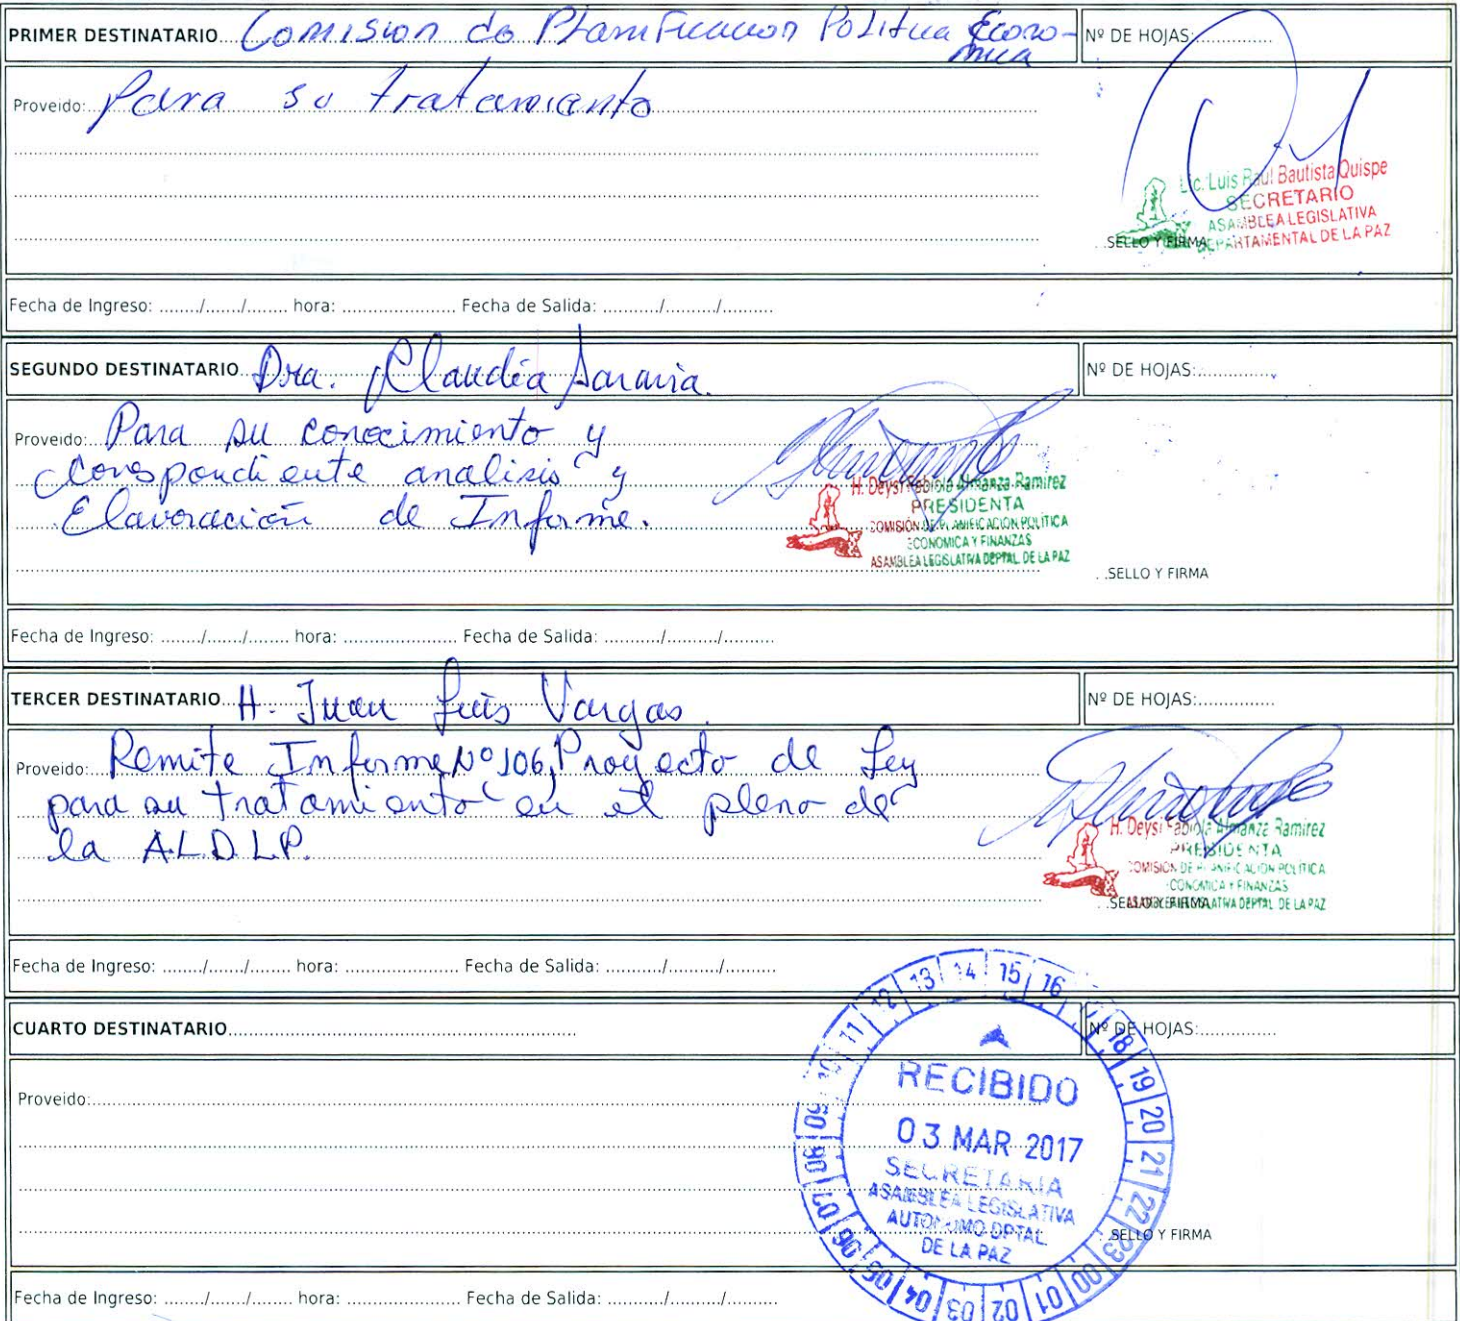 PRIMER DESTINATARIO Comision de Planificacion Politica Econo-
mica
Nº DE HOJAS:
Proveido: Para su tratamiento
Lic. Luis Raul Bautista Quispe
SECRETARIO
ASAMBLEA LEGISLATIVA
DEPARTAMENTAL DE LA PAZ
SELLO Y FIRMA
Fecha de Ingreso: ......../......./........ hora: ..................... Fecha de Salida: ........../........./..........
SEGUNDO DESTINATARIO Dra. Claudia Saravia.
Nº DE HOJAS:
Proveido: Para su conocimiento y
Correspondiente analisis y
Elavoración de Informe.
H. Deysi Fabiola Almanza Ramirez
PRESIDENTA
COMISIÓN DE PLANIFICACION POLÍTICA
ECONOMICA Y FINANZAS
ASAMBLEA LEGISLATIVA DEPTAL. DE LA PAZ
SELLO Y FIRMA
Fecha de Ingreso: ......../......./........ hora: ..................... Fecha de Salida: ........../........./..........
TERCER DESTINATARIO H. Juan Luis Vargas.
Nº DE HOJAS:
Proveido: Remite Informe Nº 106, Proyecto de Ley
para su tratamiento en el pleno de
la A.L.D.L.P.
H. Deysi Fabiola Almanza Ramirez
PRESIDENTA
COMISIÓN DE PLANIFICACION POLÍTICA
ECONOMICA Y FINANZAS
ASAMBLEA LEGISLATIVA DEPTAL. DE LA PAZ
SELLO Y FIRMA
Fecha de Ingreso: ......../......./........ hora: ..................... Fecha de Salida: ........../........./..........
CUARTO DESTINATARIO
Nº DE HOJAS:
Proveido:
RECIBIDO
03 MAR 2017
SECRETARIA
ASAMBLEA LEGISLATIVA
AUTONOMO DPTAL.
DE LA PAZ
11 12 13 14 15 16 17 18 19 20 21 22 23 00 01 02 03 04 05 06 07 08 09 10
SELLO Y FIRMA
Fecha de Ingreso: ......../......./........ hora: ..................... Fecha de Salida: ........../........./..........